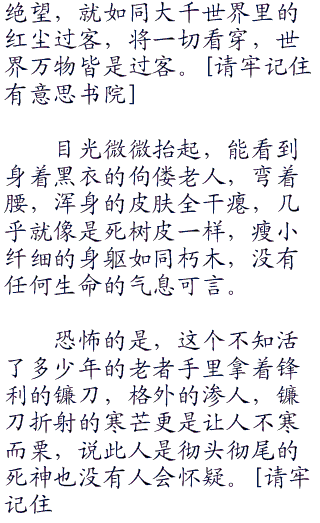 绝望，就如同大千世界里的
红尘过客，将一切看穿，世
界万物皆是过客。[请牢记住
有意思书院]
目光微微抬起，能看到
身着黑衣的佝偻老人，弯着
腰，浑身的皮肤全干瘪，几
乎就像是死树皮一样，瘦小
纤细的身躯如同朽木，没有
任何生命的气息可言。
恐怖的是，这个不知活
了多少年的老者手里拿着锋
利的镰刀，格外的渗人，镰
刀折射的寒芒更是让人不寒
而栗，说此人是彻头彻尾的
死神也没有人会怀疑。[请牢
记住